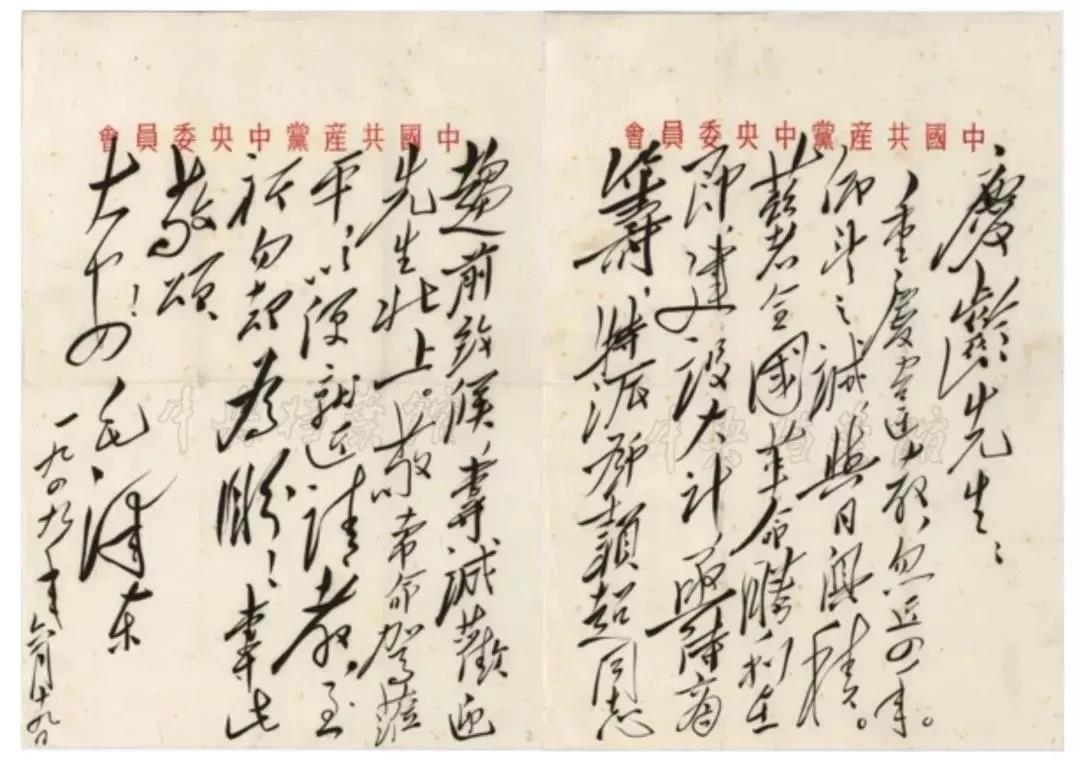 中國共產黨中央委員會
慶齡先生：
重慶違教，忽近四年。
仰望之誠，與日俱積。
茲者全國革命勝利在
即，建設大計，亟待商
籌，特派鄧穎超同志
中國共產黨中央委員會
趨前致候，專誠歡迎
先生北上。敬希命駕蒞
平，以便就近請教，至
祈勿却為盼！專此
敬頌
大安！
毛澤東
一九四九年六月十九日
中央档案館
中央档案館